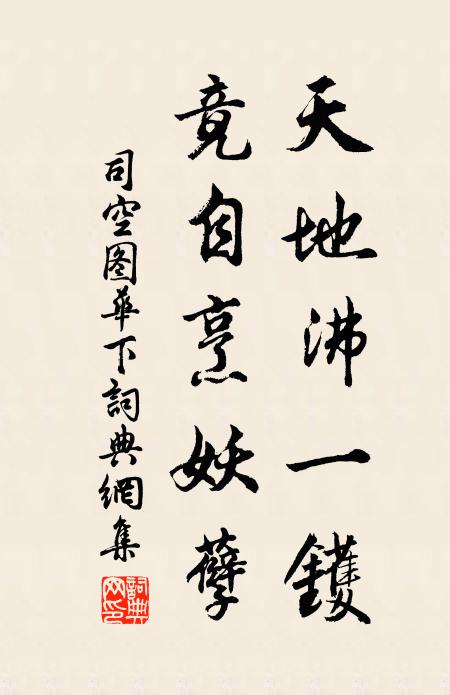 天地沸一鑊
竟自烹妖孽
司空图華下詞典網集
詞典網印